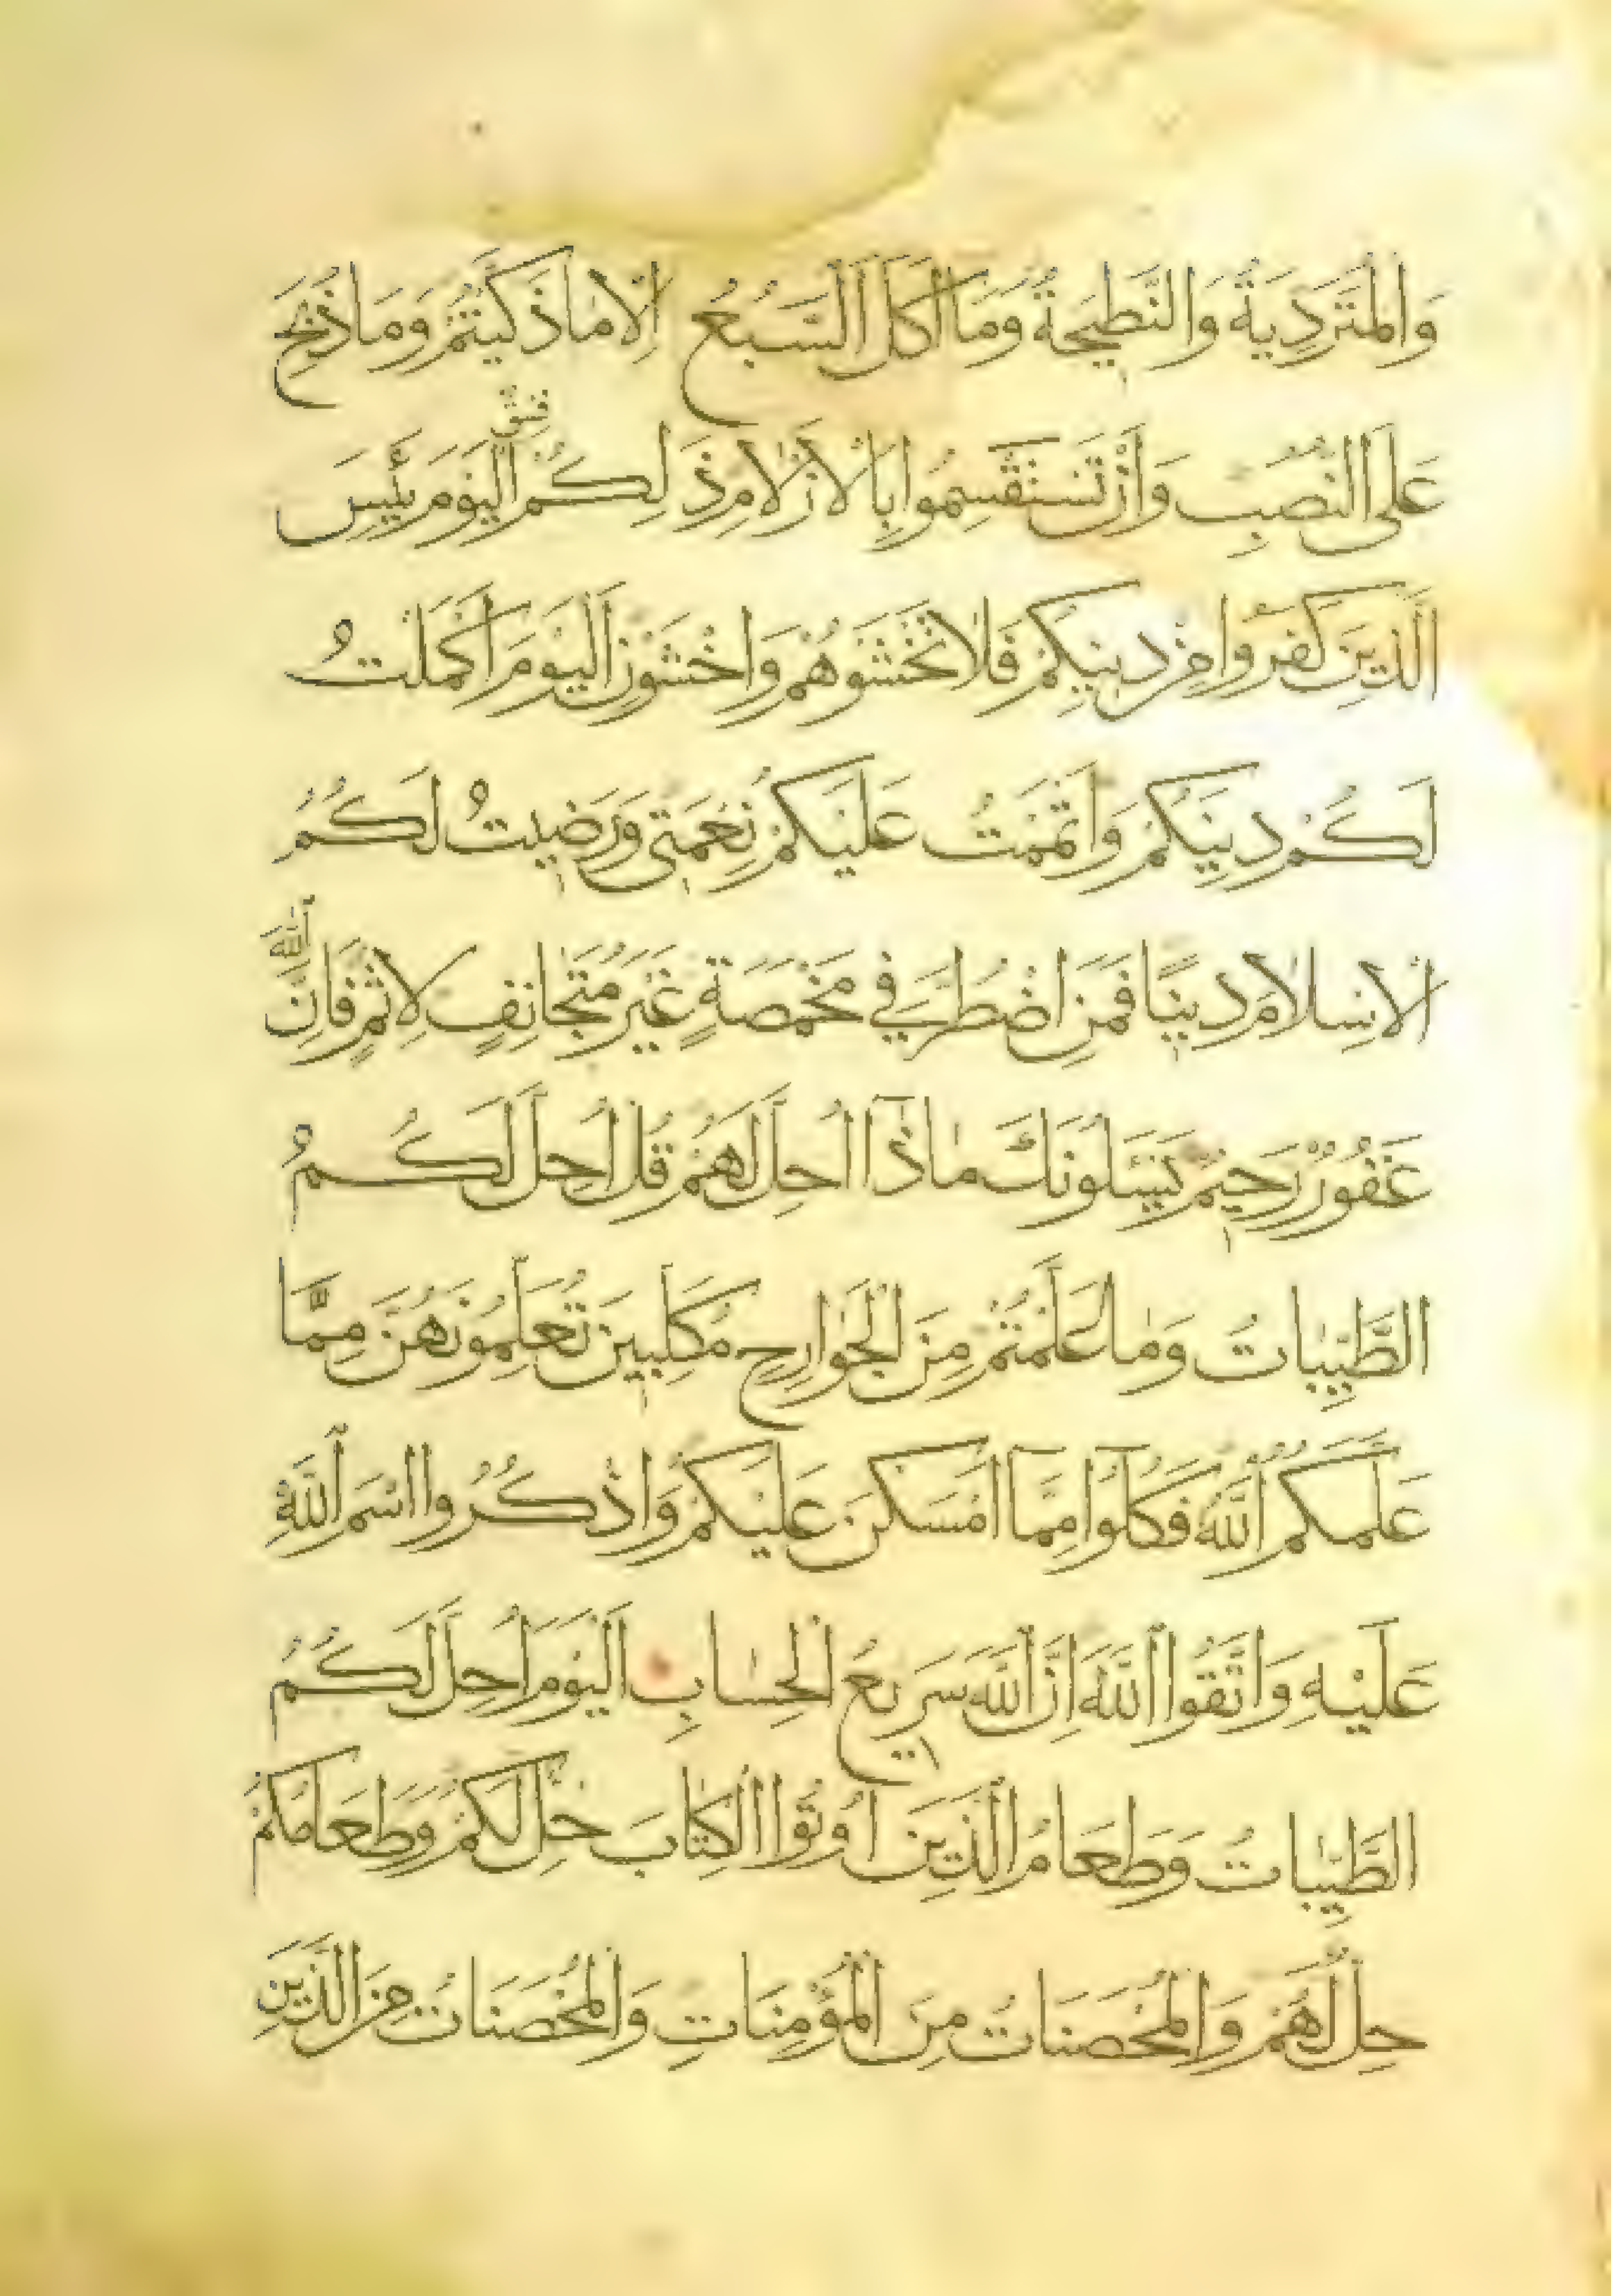 وَالْمُتَرَدِّيَةُ وَالنَّطِيحَةُ وَمَا أَكَلَ السَّبُعُ إِلَّا مَا ذَكَّيْتُمْ وَمَا ذُبِحَ
عَلَى النُّصُبِ وَأَنْ تَسْتَقْسِمُوا بِالْأَزْلَامِ ذَلِكُمْ فِسْقٌ الْيَوْمَ يَئِسَ
الَّذِينَ كَفَرُوا مِنْ دِينِكُمْ فَلَا تَخْشَوْهُمْ وَاخْشَوْنِ الْيَوْمَ أَكْمَلْتُ
لَكُمْ دِينَكُمْ وَأَتْمَمْتُ عَلَيْكُمْ نِعْمَتِي وَرَضِيتُ لَكُمُ
الْإِسْلَامَ دِينًا فَمَنِ اضْطُرَّ فِي مَخْمَصَةٍ غَيْرَ مُتَجَانِفٍ لِإِثْمٍ فَإِنَّ اللَّهَ
غَفُورٌ رَحِيمٌ يَسْـَٔلُونَكَ مَاذَا أُحِلَّ لَهُمْ قُلْ أُحِلَّ لَكُمُ
الطَّيِّبَاتُ وَمَا عَلَّمْتُمْ مِنَ الْجَوَارِحِ مُكَلِّبِينَ تُعَلِّمُونَهُنَّ مِمَّا
عَلَّمَكُمُ اللَّهُ فَكُلُوا مِمَّا أَمْسَكْنَ عَلَيْكُمْ وَاذْكُرُوا اسْمَ اللَّهِ
عَلَيْهِ وَاتَّقُوا اللَّهَ إِنَّ اللَّهَ سَرِيعُ الْحِسَابِ الْيَوْمَ أُحِلَّ لَكُمُ
الطَّيِّبَاتُ وَطَعَامُ الَّذِينَ أُوتُوا الْكِتَابَ حِلٌّ لَكُمْ وَطَعَامُكُمْ
حِلٌّ لَهُمْ وَالْمُحْصَنَاتُ مِنَ الْمُؤْمِنَاتِ وَالْمُحْصَنَاتُ مِنَ الَّذِينَ